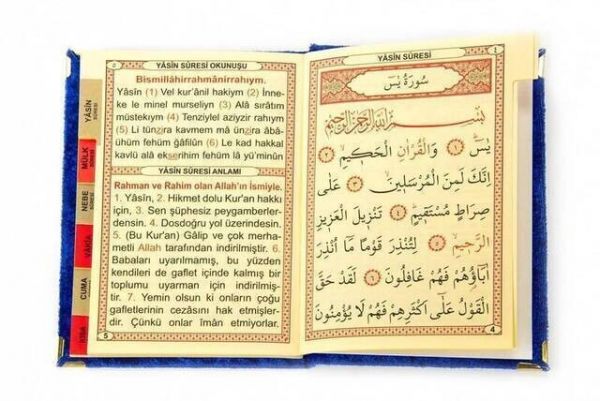 YÂSİN SÛRESİ OKUNUŞU
Bismillâhirrahmânirrahıym.
Yâsîn (1) Vel kur'ânil hakiym (2) İnne-
ke le minel murseliyn (3) Alâ sırâtım
müstekıym (4) Tenziylel aziyzir rahıym
(5) Li tünzira kavmem mâ ünzira âbâ-
ühüm fehüm ğâfilûn (6) Le kad hakkal
kavlü alâ ekserihim fehüm lâ yü'minûn
YÂSİN SÛRESİ ANLAMI
Rahman ve Rahim olan Allah'ın İsmiyle.
1. Yâsîn, 2. Hikmet dolu Kur'an hakkı
için, 3. Sen şüphesiz peygamberler-
densin. 4. Dosdoğru yol üzerindesin.
5. (Bu Kur'an) Gâlip ve çok merha-
metli Allah tarafından indirilmiştir. 6.
Babaları uyarılmamış, bu yüzden
kendileri de gaflet içinde kalmış bir
toplumu uyarman için indirilmiş-
tir. 7. Yemin olsun ki onların çoğu
gafletlerinin cezasını hak etmişler-
dir. Çünkü onlar îmân etmiyorlar.
5
YÂSİN SÛRESİ
MÜLK SÛRESİ
NEBE SÛRESİ
VAKIA
CUMA
KISA
YÂSİN SÛRESİ
1
سُورَةُ يٰسٓ
بِسْمِ اللّٰهِ الرَّحْمٰنِ الرَّحِيمِ
يٰسٓ ﴿١﴾ وَالْقُرْاٰنِ الْحَكِيمِ ﴿٢﴾
اِنَّكَ لَمِنَ الْمُرْسَلِينَ ﴿٣﴾ عَلٰى
صِرَاطٍ مُسْتَقِيمٍ ﴿٤﴾ تَنْزِيلَ الْعَزِيزِ
الرَّحِيمِ ﴿٥﴾ لِتُنْذِرَ قَوْمًا مَا اُنْذِرَ
اٰبَاؤُهُمْ فَهُمْ غَافِلُونَ ﴿٦﴾ لَقَدْ حَقَّ
الْقَوْلُ عَلٰى اَكْثَرِهِمْ فَهُمْ لَا يُؤْمِنُونَ
4